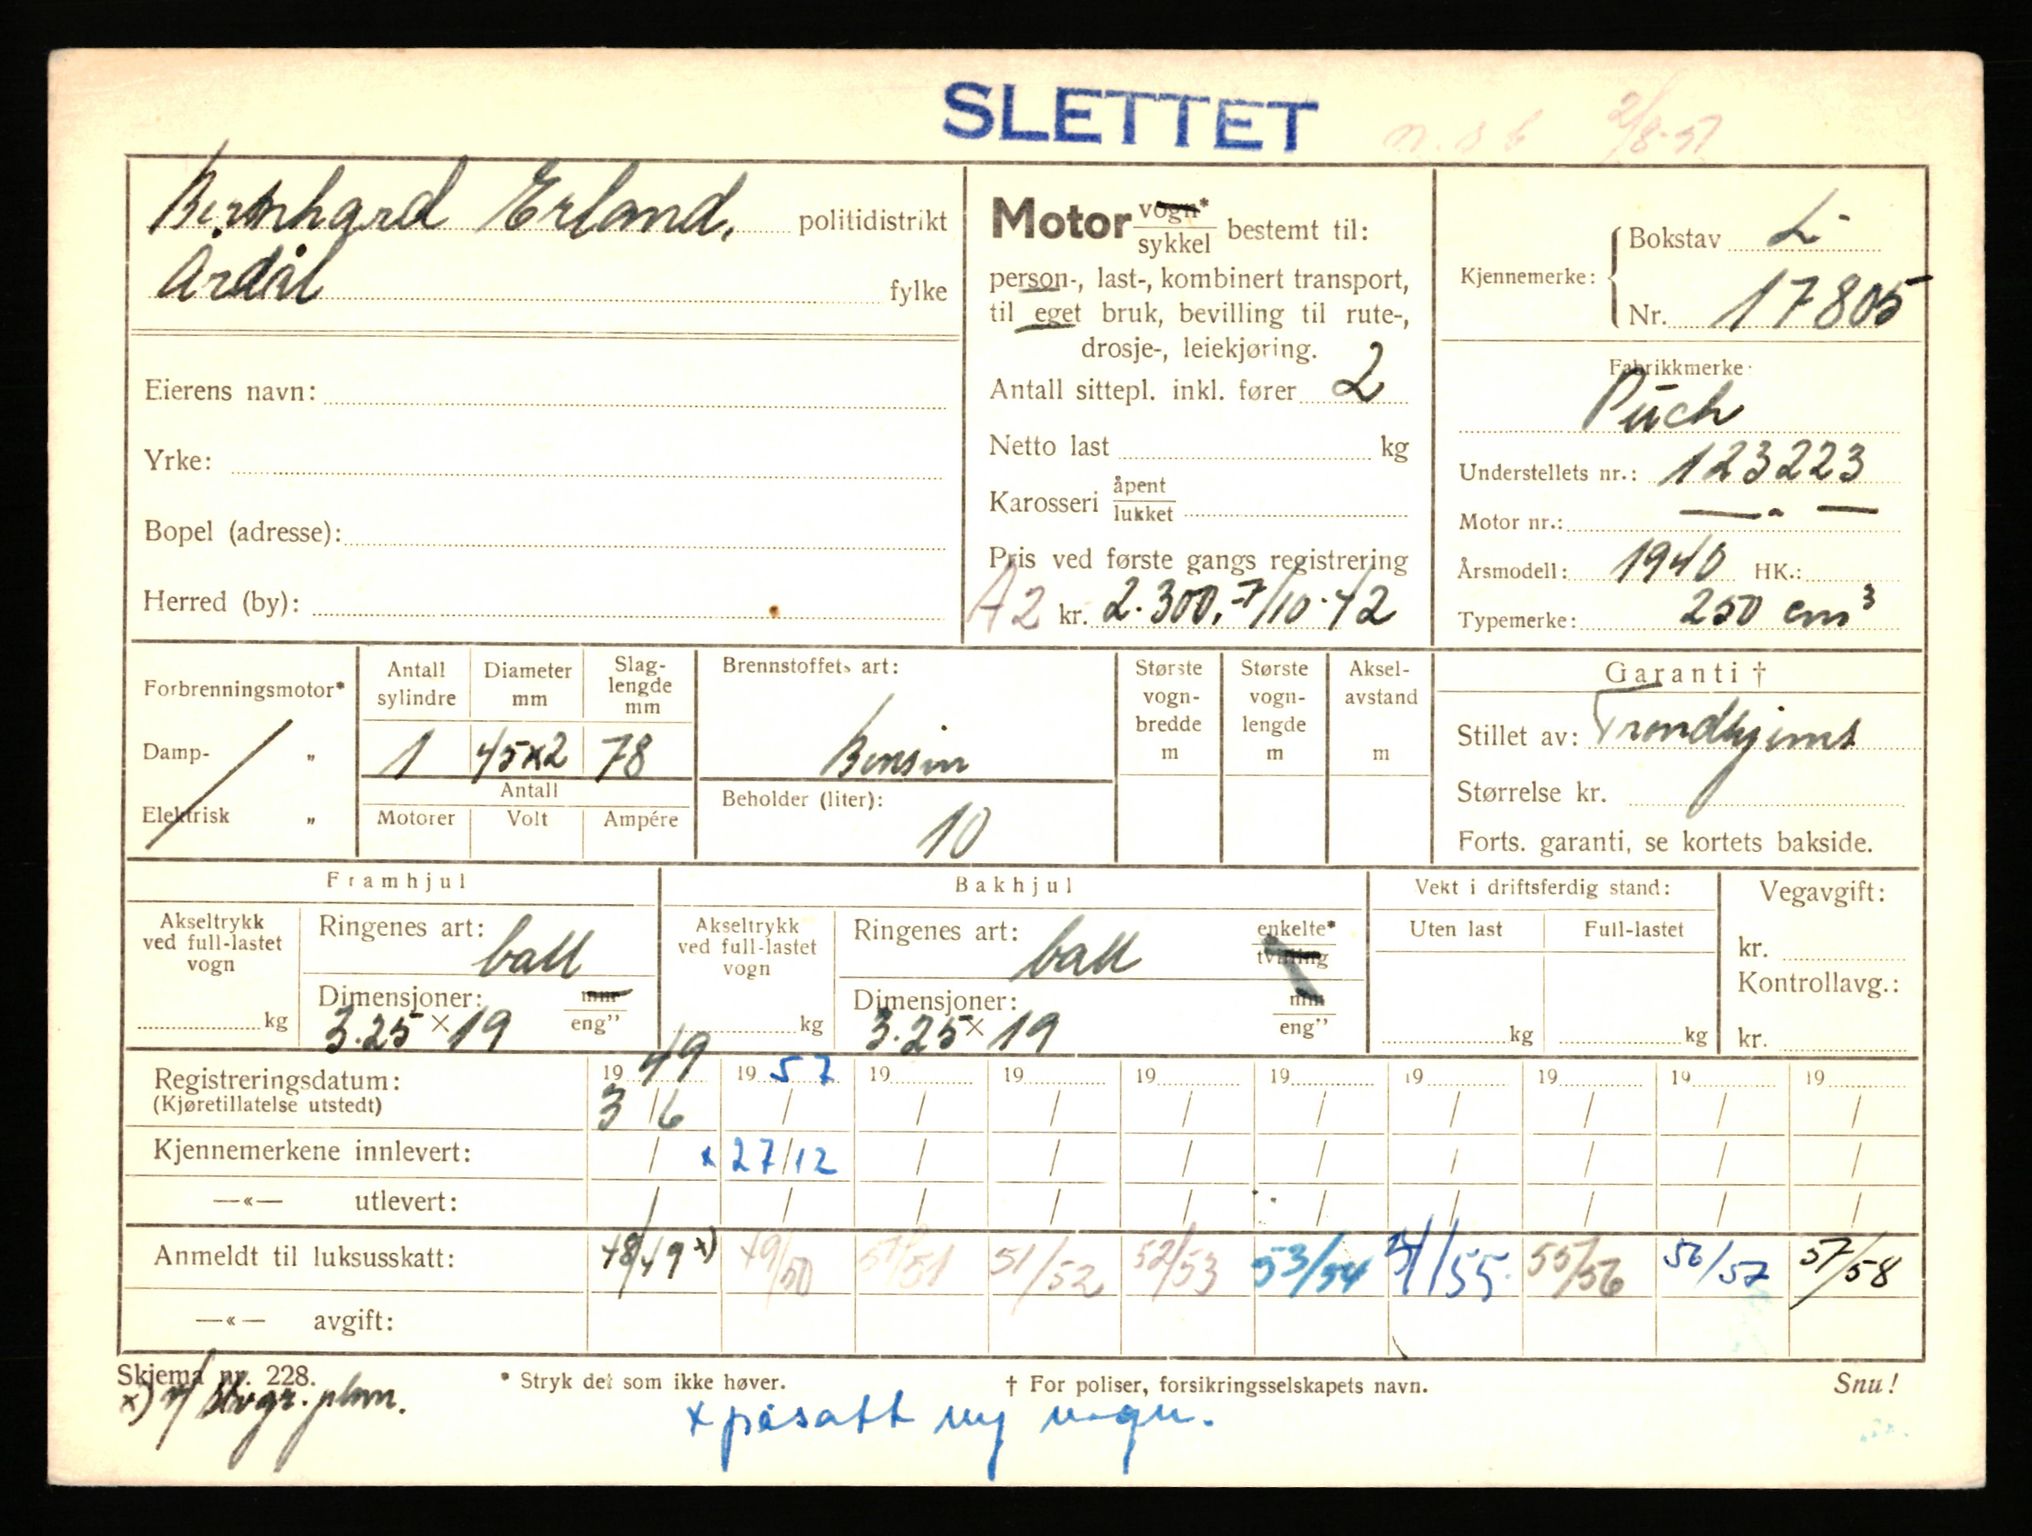 SLETTET
2/8-51
Bernhard Erland, politidistrikt
Årdal fylke
Eierens navn:
Yrke:
Bopel (adresse):
Herred (by):
Motor vogn* sykkel bestemt til:
person-, last-, kombinert transport,
til eget bruk, bevilling til rute-,
drosje-, leiekjøring.
Antall sittepl. inkl. fører 2
Netto last kg
Karosseri åpent lukket
Pris ved første gangs registrering
A2 kr. 2.300,- 7/10-42
Kjennemerke: Bokstav L-
Nr. 17805
Fabrikkmerke
Puch
Understellets nr.: 123223
Motor nr.: — " —
Årsmodell: 1940 HK.:
Typemerke: 250 cm³
Forbrenningsmotor*
Damp- „
Elektrisk „
Antall sylindre 1
Diameter mm 45x2
Slaglengde mm 78
Antall
Motorer Volt Ampére
Brennstoffets art:
Bensin
Beholder (liter):
10
Største vognbredde m
Største vognlengde m
Akselavstand m
Garanti †
Stillet av: Trondhjems
Størrelse kr.
Forts. garanti, se kortets bakside.
Framhjul
Akseltrykk ved full-lastet vogn kg
Ringenes art: ball
Dimensjoner: mm eng"
3.25 x 19
Bakhjul
Akseltrykk ved full-lastet vogn kg
Ringenes art: ball enkelte* tvilling
Dimensjoner: mm eng"
3.25 x 19
Vekt i driftsferdig stand:
Uten last Full-lastet
kg kg
Vegavgift:
kr.
Kontrollavg.:
kr.
Registreringsdatum: 1949 1957 19 19 19 19 19 19 19 19
(Kjøretillatelse utstedt) 3/6 / / / / / / / / /
Kjennemerkene innlevert: / x 27/12 / / / / / / / /
—«— utlevert: / / / / / / / / / /
Anmeldt til luksusskatt: 48/49 x) 49/50 51/51 51/52 52/53 53/54 54/55 55/56 56/57 57/58
—«— avgift:
Skjema nr. 228. * Stryk det som ikke høver. † For poliser, forsikringsselskapets navn. Snu!
x)
x påsatt ny vogn.